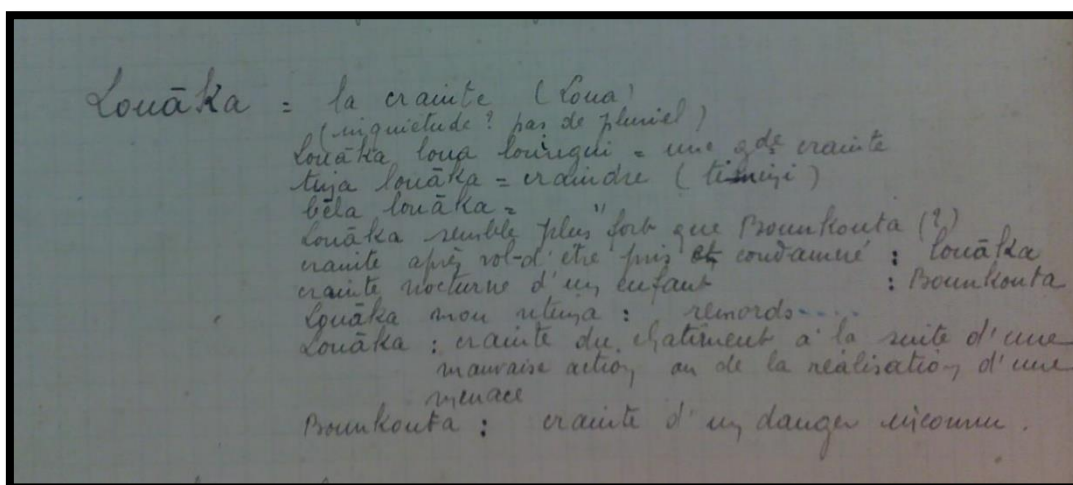 Louāka = la crainte (Loua)
(inquiétude ? pas de pluriel)
Louāka loua louregui = une gde crainte
tuja louāka = craindre (timuji)
béla louāka = "
Louāka semble plus fort que Bounkouta (?)
crainte après vol-d'être pris et condamné : louāka
crainte nocturne d'un enfant : Bounkouta
Louāka mou utuja : remords.....
Louāka : crainte du châtiment à la suite d'une
mauvaise action ou de la réalisation d'une
menace
Bounkouta : crainte d'un danger inconnu.